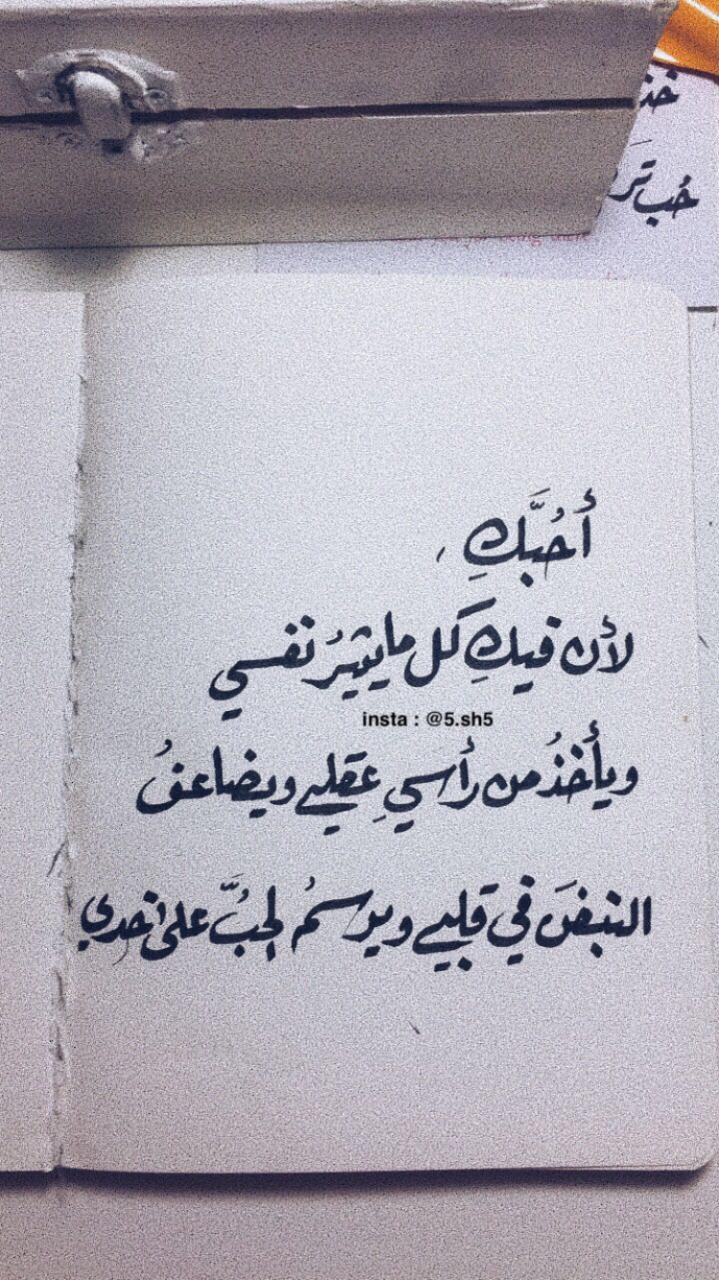 خذ
حُب تر
أحُبَّكِ ،
لأن فيكِ كل ما يثيرُ نفسي
insta : @5.sh5
ويأخذُ من رأسي عقلي ويضاعفُ
النبضَ في قلبي ويرسمُ الحُبَّ على خدي